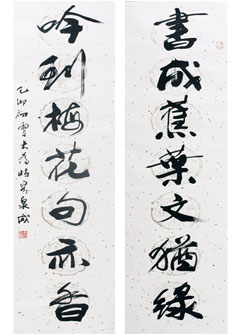 書成蕉葉文猶綠
吟到梅花句亦香
乙卯初雪大為於泉城